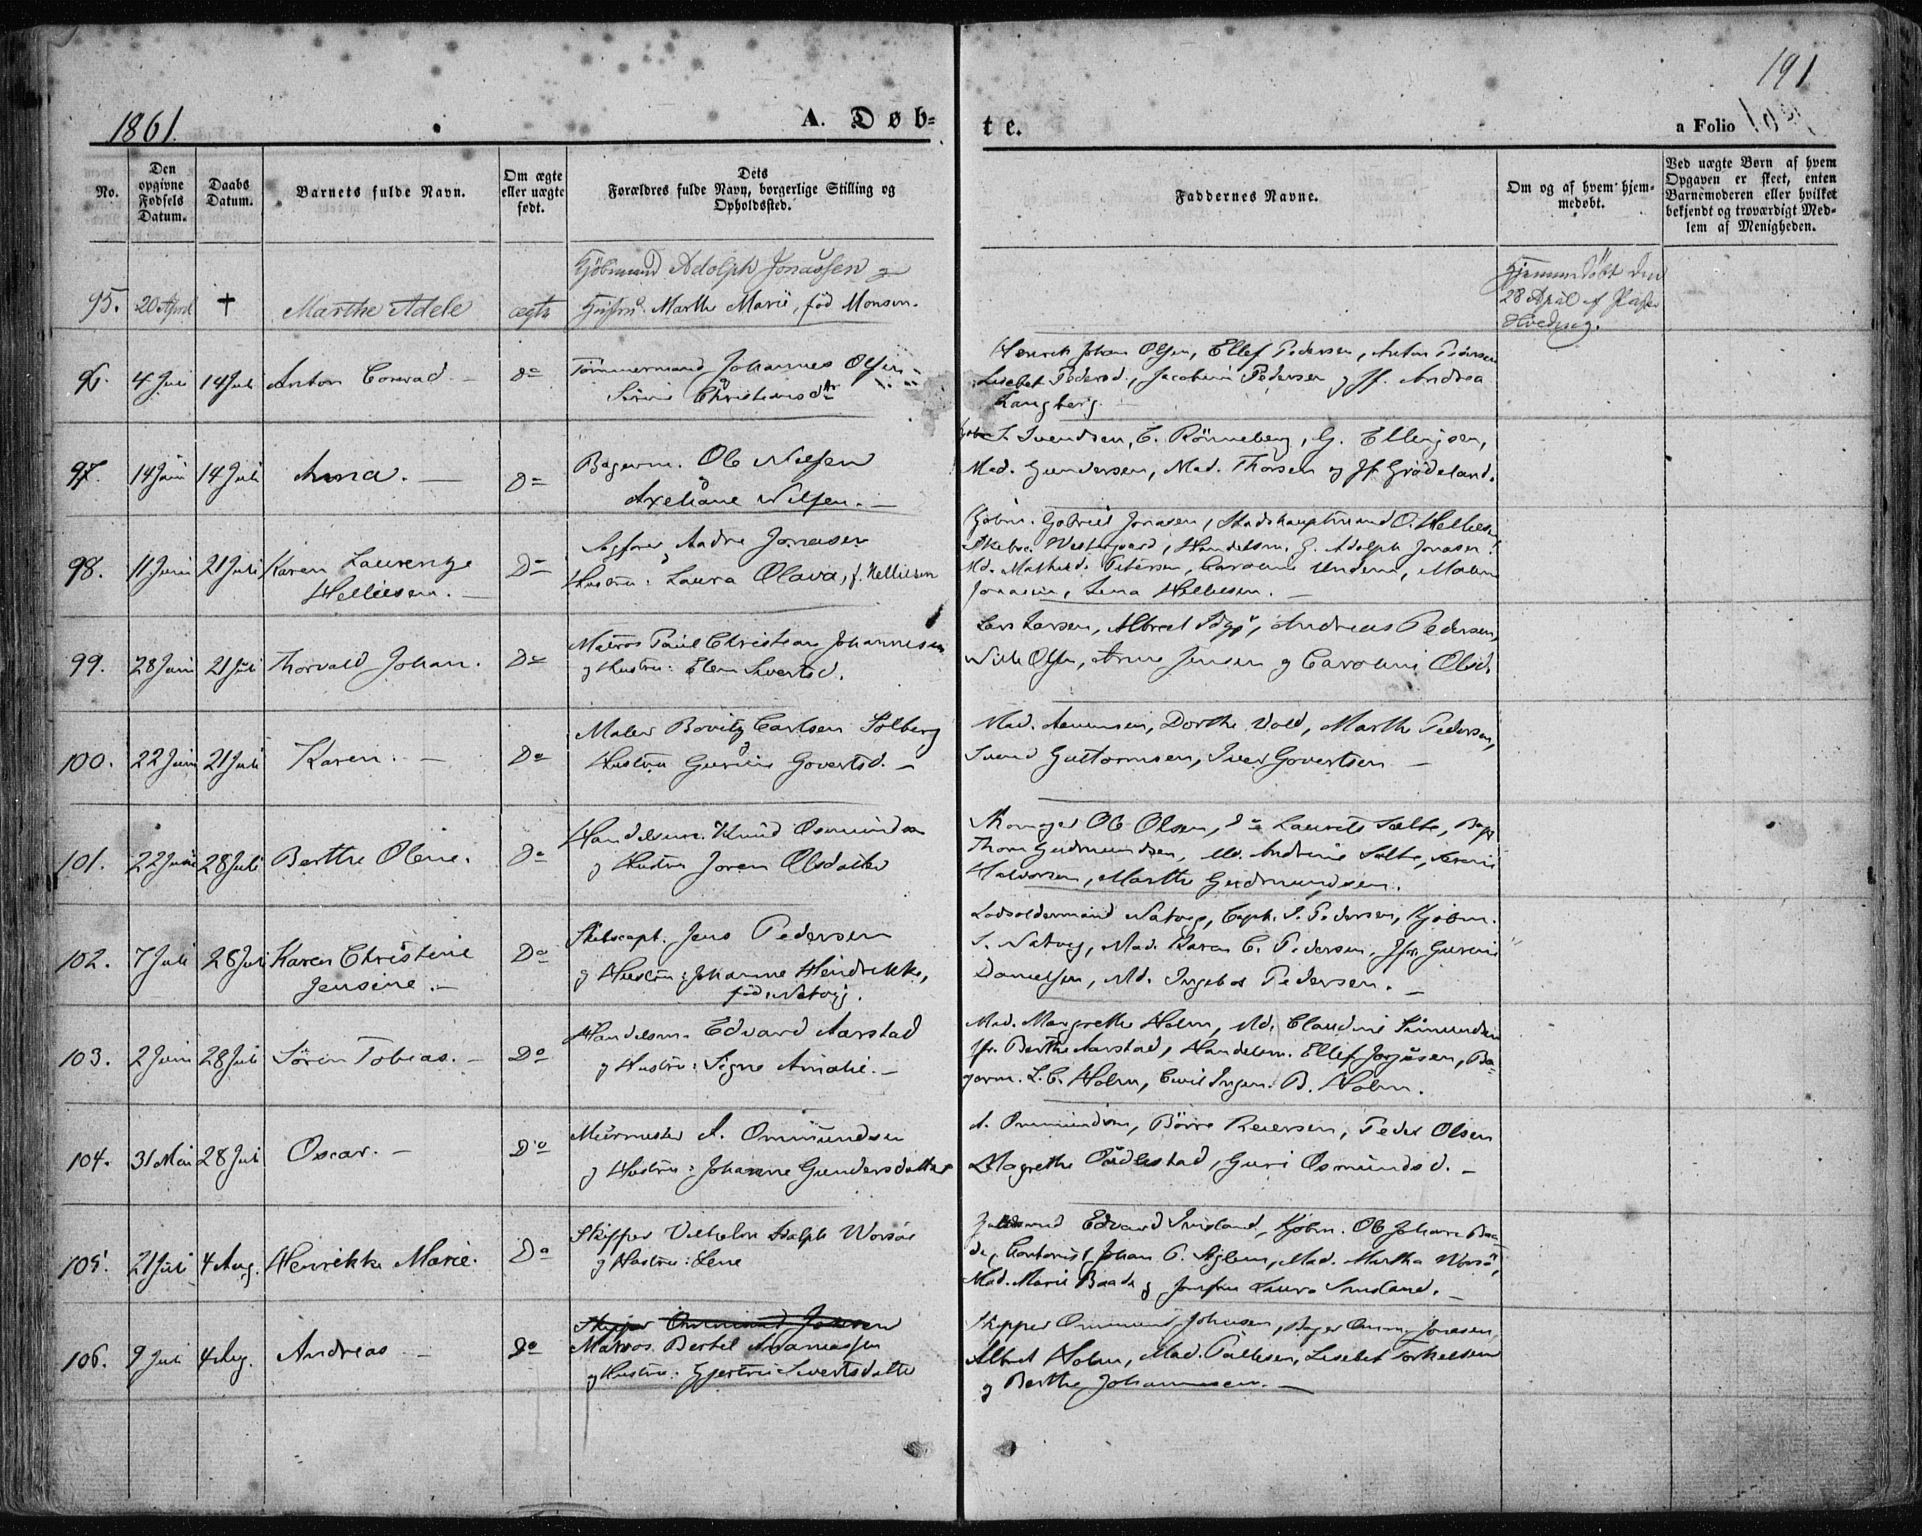 191
1861.
A. Døb-
te.
a Folio 191
No.
Den opgivne Fødsels Datum.
Daabs Datum.
Barnets fulde Navn.
Om ægte eller uægte født.
Dets Forældres fulde Navn, borgerlige Stilling og Opholdssted.
Faddernes Navne.
Om og af hvem hjemmedøbt.
Ved uægte Børn af hvem Opgaven er skeet, enten Barnemoderen eller hvilket bekjendt og troværdigt Medlem af Menigheden.
Kjøbmand Adolph Jonassen og
95. 20 April † Marthe Adele ægte Hustru: Marthe Marie, fød Monsen.
Hjemmedøbt den
28 April af
96. 4 Juli 14 Juli Anton Conrad. — do Tømmermand Johannes Olsen
Sirine Christiansdtr
Henrik Johan Olsen, Ellef Pedersen, Anton Pedersen
Lisebet Pedersd., Jacobine Pedersen og Jf. Andrea
Langberg. —
97. 14 Juni 14 Juli Anna. — do Bagerm. Ole Nilsen
Axeliane Nilsen. —
S. Svendsen, C. Rönneberg, G. Ellingsen,
Mad. Gundersen, Mad. Thorsen og Jf. Grödeland.
98. 11 Juni 21 Juli Karen Laurenze
Helliesen. —
Do Sagfører Aadne Jonasen
Hustru: Laura Olava, f. Helliesen
Kjøbm. Gabriel Jonasen, Stadshauptmand O. Helliesen
Skibsc. Westergaard, Handelsm. G. Adolph Jonasen
Md. Mathilde Petersen, Caroline Unden, Malene
Jonasen, Lina Helliesen. —
99. 28 Juni 21 Juli Thorvald Johan. Do Matros Paul Christian Johannesen
og Hustru: Elen Sivertsd.
Lars Larsen, Albret, Andreas Pedersen,
Nille Olsen, Anne Jensen og Caroline Olsd.
100. 22 Juni 21 Juli Karen. — Do Maler Bovitz Carlsen Solberg
Hustru Gurine Govertsd. —
Mad. Dorthe Vold, Marthe Pedersen,
Svend Guttormsen, Iver Govertsen —
101. 22 Juni 28 Juli Berthe Oline. Do Handelsm. Knud Osmundsen
og Hustru Joren Olsdatter
Skomager Ole Olsen, do Laurets Salte,
Thom Gudmundsen, Md. Andrine Salte, Serine
Halvorsen, Marthe Gudmundsen.
102. 7 Juli 28 Juli Karen Christine
Jensine. —
Do Skibscapt. Jens Pedersen
og Hustru: Johanne Hendrikke,
fød Natvig.
Lodsoldermand Natvig, Capt. S. Pedersen, Kjøbm.
S. Natvig, Mad. Karen C. Pedersen, Jfr. Gurine
Danielsen, Md. Ingebor Pedersen. —
103. 2 Juni 28 Juli Sören Tobias. — Do Handelsm. Edvard Aarstad
og Hustru: Signe Amalie. —
Mad. Margrethe Holm, Md. Claudine Simundsen
Jfr. Berthe Aarstad, Handelsm. Ellef Jorgusen, Ba-
germ. L. C. Holm, Civil Ingen. B. Holm.
104. 31 Mai 28 Juli Oscar. — Do Murmester A. Ommundsen
og Hustru: Johanne Gundersdatter
A. Ommundsen, Börre Reiersen, Peder Olsen
Magrethe Oudestad, Guri Osmundsd. —
105. 21 Juli 4 Aug. Henrikke Marie. Do Skipper Vilhelm Adolph Worsöe
og Hustru: Lene
Edvard Smsland, Kjøbm. Ole Johan Baa-
de, Contorist Johan P. Mad. Martha Worsö,
Mad. Marie Baade og Jomfru Laura Smsland. —
106. 9 Juli 4 Aug. Andreas — Do Skipper Ommund Johnsen
Matros Bertel Ananiassen
og Hustru: Gjertrud Sivertsdatter
Skipper Ommund Johnsen, Bager Omm. Jonasen
Albret Holm, Mad. Pallesen, Lisebet Torkelsen
og Berthe Johannesen. —